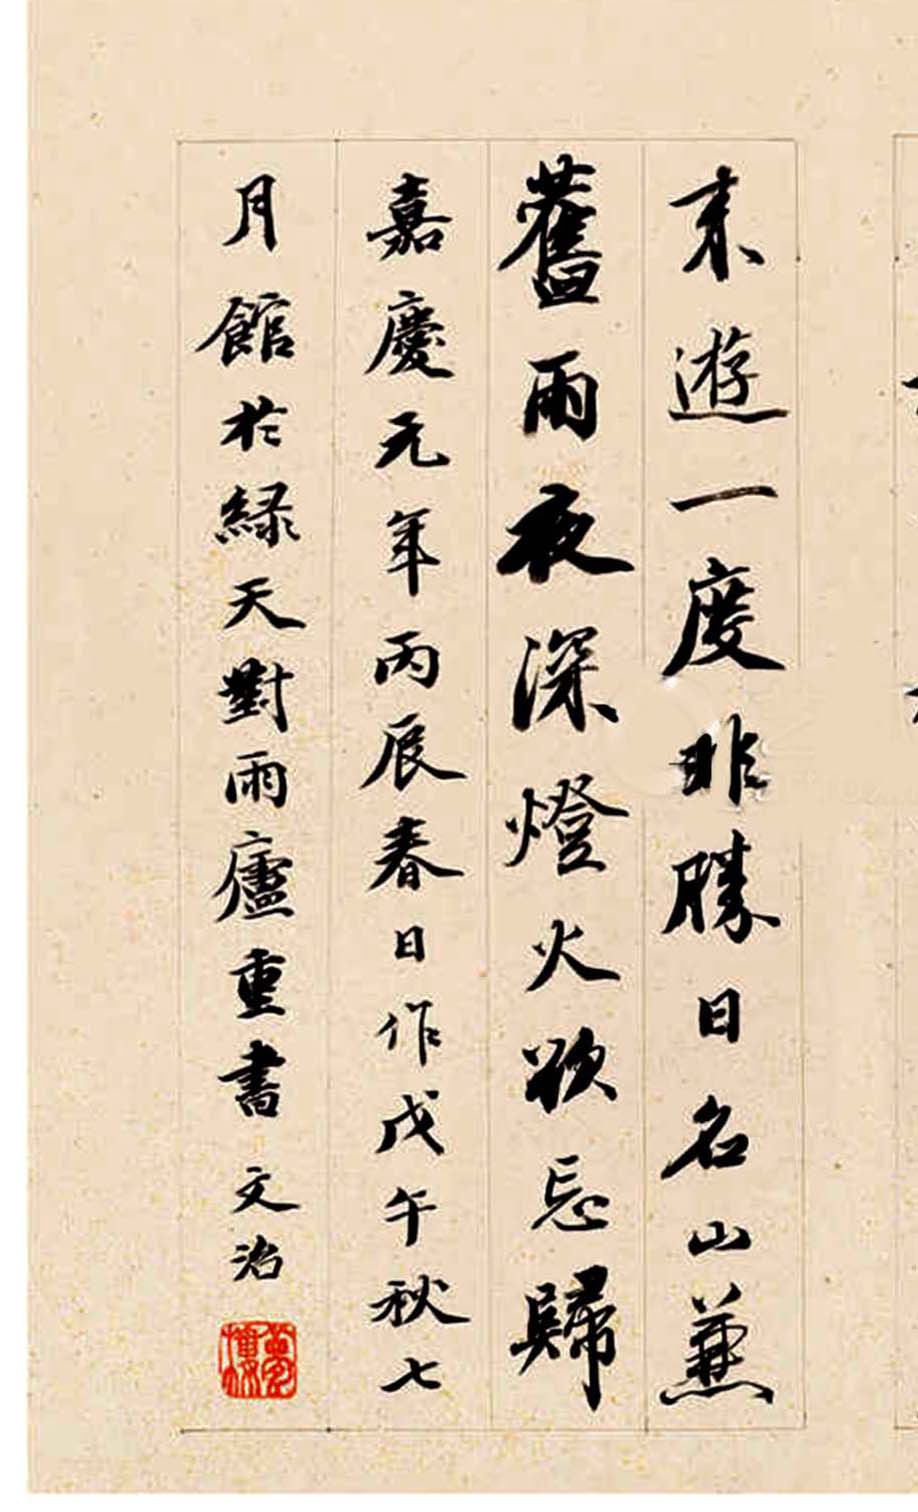 來遊一度非勝日名山兼
舊雨夜深燈火欲忘歸
嘉慶元年丙辰春日作戊午秋七
月館於綠天對雨廬重書 文治
夢樓